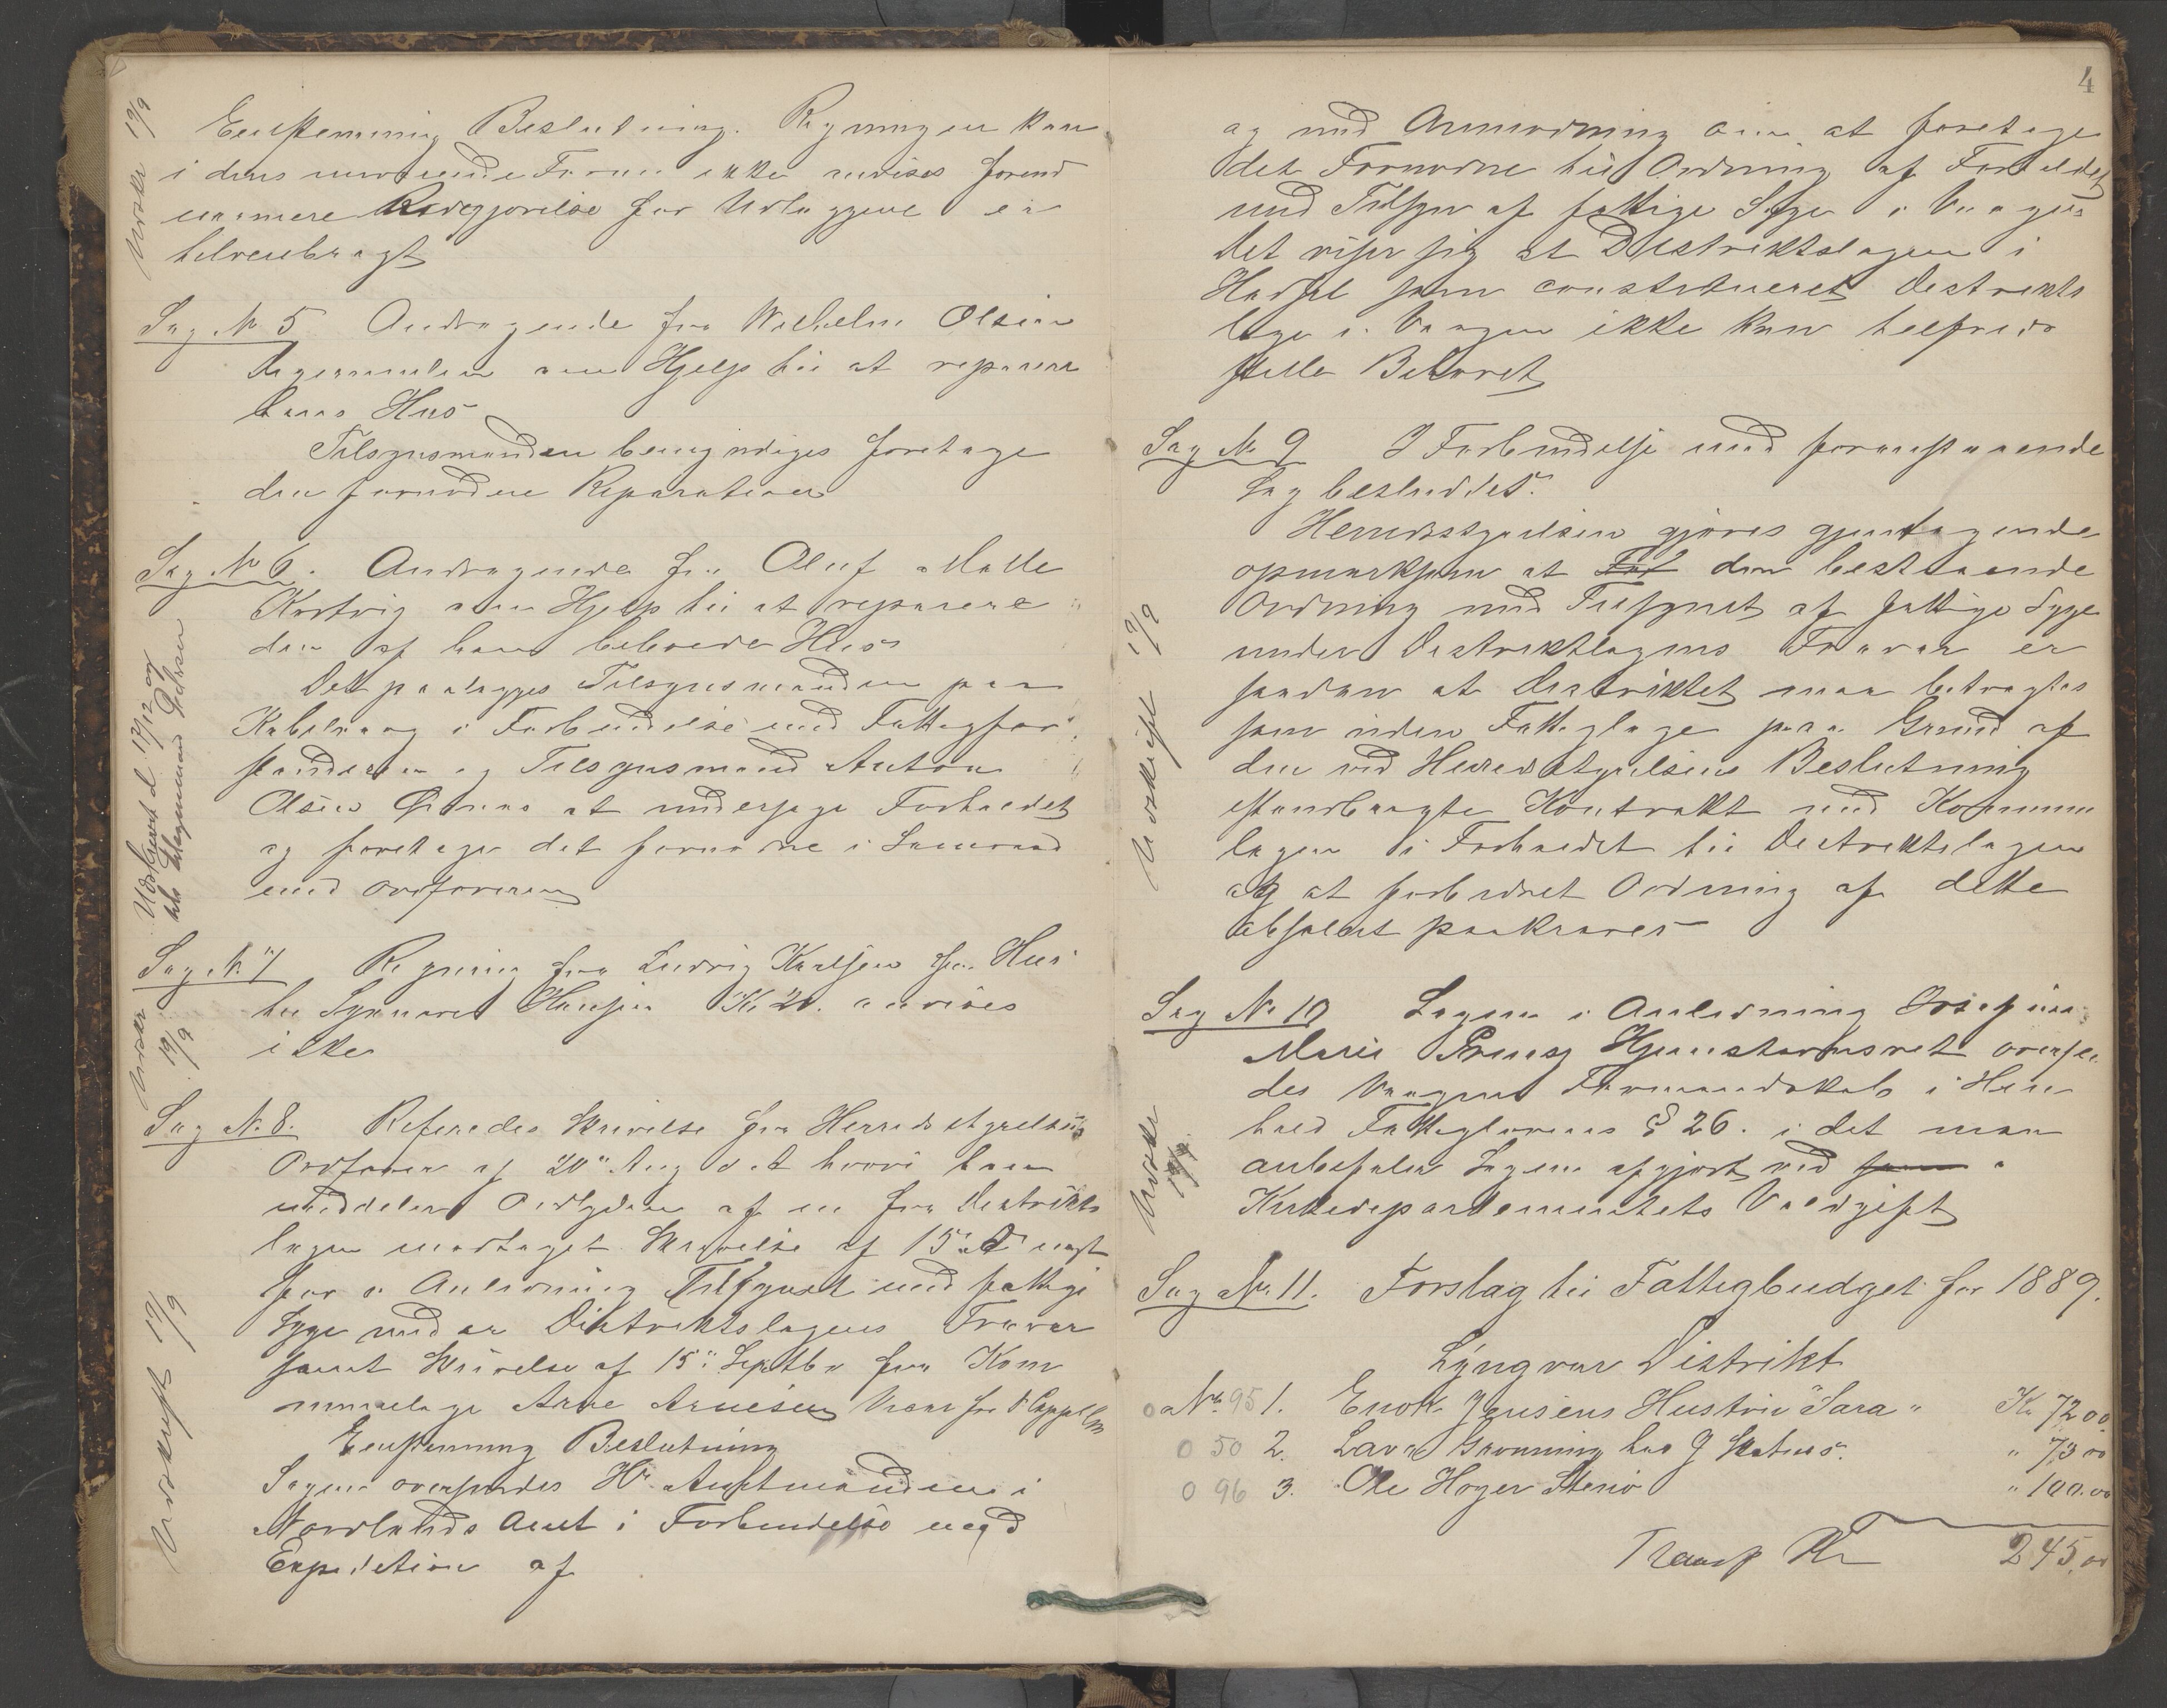 Udskr 19/9
Eenstemmig Beslutning. Regningen kan
i dens nuværende Form ikke anvises førend
nærmere Redegjørelse for Udlæggene er
tilveiebragt
Sag No 5 Andragende fra Vilhelm Olsen
om Hjelp til at reparere
hans Hus
Tilsynsmanden bemyndiges foretage
den fornødne Reparation
Sag No 6. Andragende fra Oluf
om Hjelp til at reparere
det af ham beboede Hus
Det paalægges Tilsynsmanden paa
Kabelvaag i Forbindelse med Fattigfor
standeren og Tilsynsmand Anton
Olsen at undersøge Forholdet
og foretage det fornødne i Samraad
med Ordføreren
Udskrevet d. 17/12 og
Sag No 7 Regning fra Ludvig Karlsen for Hus
til Hansen Kr 20. anvises
ikke
Udskr 19/9
Sag No 8. Referedes Skrivelse fra Herredsstyrelsens
Ordfører af 20" Aug d A hvori han
meddeler Ordlyden af en fra Distrikts
lægen modtaget Skrivelse af 15" d næst
før i Anledning Tilsynet med fattige
Syge under Distriktslægens Fravær
samt Skrivelse af 15" Septbr fra Kom
munelæge Arne Arnesen
Eenstemmig Beslutning
Sagen oversendes Hr Amtmanden i
Nordlands Amt i Forbindelse med
Expedition af
Udskrift 19/9
4
og med Anmodning om at foretage
det Fornødne til Ordning af Forholdet
med Tilsyn af fattige Syge i Vaagen
Det viser sig at Distriktslægen i
Hadsel som constitueret Distrikts
læge i Vaagen ikke kan tilfreds
stille Behovet
Sag No 9 I Forbindelse med foranstaaende
Sag besluttet:
Herredsstyrelsen gjøres gjentagende
opmærksom at den bestaaende
Ordning med Tilsynet af fattige Syge
under Distriktlægens Fravær er
saadan at Distriktet maa betragtes
som uden Fattiglæge paa Grund af
den ved Herredsstyrelsens Beslutning
istandbragte Kontrakt med Kommune
lægen i Forholdet til Distriktslægen
og at forbedret Ordning af dette
absolut paakræves
Udskrift 19/9
Sag No 10 Sagen i Anledning Josefine
Marie Hjemstavnsret oversen
des Vaagens Formandskab i Hen
hold Fattiglovens § 26. i det man
anbefaler Sagen afgjort ved
Kirkedepartementets Voldgift
Udskr 19/9
Sag No 11. Forslag til Fattigbudget for 1889.
Lyngvær Distrikt
o a No 95 1. Enok Jensens Hustru Sara " Kr 72 00
0 50 2. Lava Grønning hos J " 73 00
0 96 3. Ole Høyer Steiro " 100.00
Transp Kr 245,00